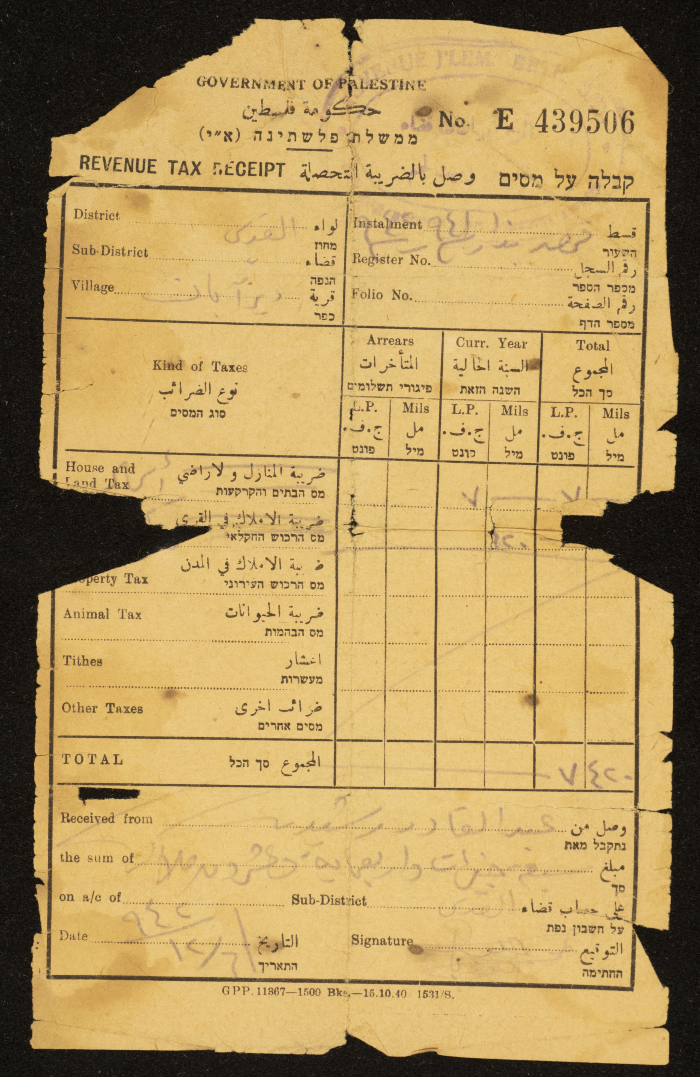 GOVERNMENT OF PALESTINE
حكومة فلسطين
ממשלת פלשתינה (א״י)
No. E 439506
REVENUE TAX RECEIPT وصل بالضريبة المتحصلة קבלה על מסים
District القدس لواء
מחוז
Sub-District قضاء
הנפה
Village دير آبان قرية
כפר
Instalment قسط
השעור
Register No. رقم السجل
מספר הספר
Folio No. رقم الصفحة
מספר הדף
Kind of Taxes
نوع الضرائب
סוג המסים
Arrears Curr. Year Total
المتأخرات السنة الحالية المجموع
פיגורי תשלומים השנה הזאת סך הכל
L.P. Mils L.P. Mils L.P. Mils
ج.ف. مل ج.ف. مل ج.ف. مل
פונט מיל פונט מיל פונט מיל
House and ضريبة المنازل ولاراضي
Land Tax מס הבתים והקרקעות
٧ ٧
ضريبة الاملاك في القرى
מס הרכוש החקלאי
ضريبة الاملاك في المدن
Property Tax מס הרכוש העירוני
Animal Tax ضريبة الحيوانات
מס הבהמות
Tithes اعشار
מעשרות
Other Taxes ضرائب اخرى
מסים אחרים
TOTAL المجموع סך הכל ٧ ٤٢٠
Received from عبد القادر وصل من
נתקבל מאת
the sum of مبلغ
סך
on a/c of Sub-District القدس على حساب قضاء
על חשבון נפת
Date التاريخ
התאריך
Signature التوقيع
החתימה
G P P. 11867—1500 Bks.—15.10.40 1531/S.